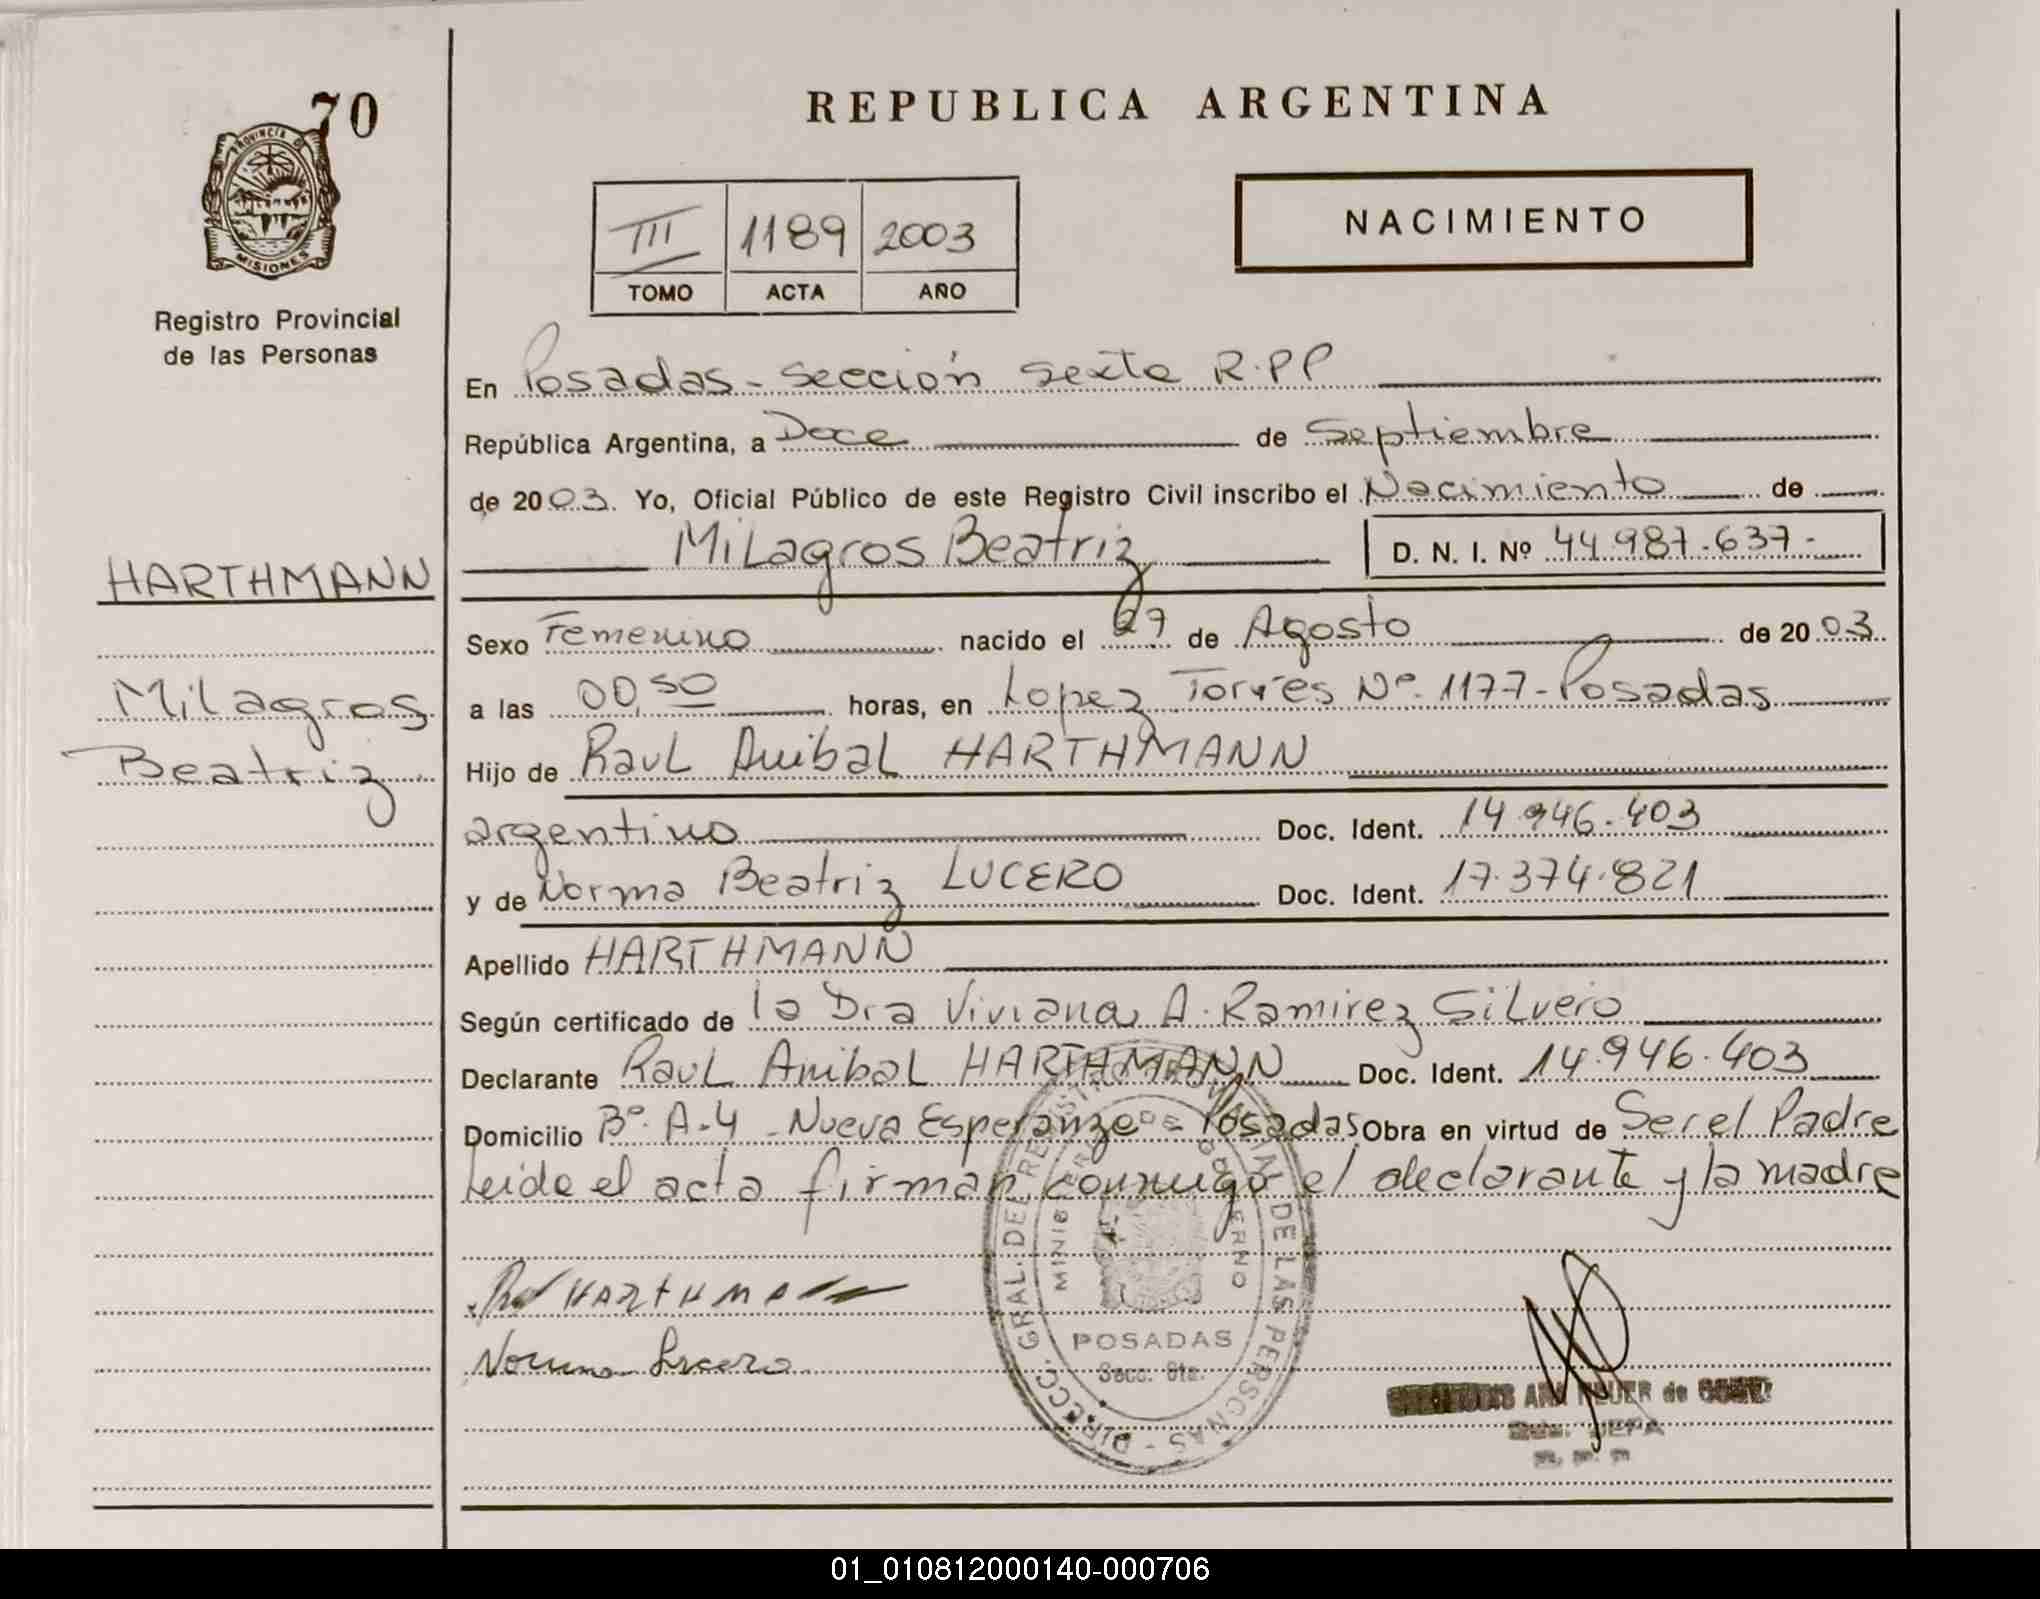 70
PROVINCIA D
MISIONES
Registro Provincial
de las Personas
HARTHMANN
Milagros
Beatriz
REPUBLICA ARGENTINA
III 1189 2003
TOMO ACTA AÑO
NACIMIENTO
En Posadas - sección sexta R.P.P
República Argentina, a Doce de Septiembre
de 2003. Yo, Oficial Público de este Registro Civil inscribo el Nacimiento de
Milagros Beatriz D. N. I. Nº 44.987.637.-
Sexo Femenino nacido el 27 de Agosto de 2003
a las 00,50 horas, en Lopez Torres Nº 1177-Posadas
Hijo de Raul Anibal HARTHMANN
argentino Doc. Ident. 14.946.403
y de Norma Beatriz LUCERO Doc. Ident. 17.374.821
Apellido HARTHMANN
Según certificado de la Dra Viviana A. Ramirez Silvero
Declarante Raul Anibal HARTHMANN Doc. Ident. 14.946.403
Domicilio Bº. A-4 - Nueva Esperanza - Posadas Obra en virtud de Ser el Padre
Leida el acta firman conmigo el declarante y la madre
HARTHMANN
Norma Lucero
DIRECC. GRAL. DEL REGISTRO PROVINCIAL DE LAS PERSONAS
MINISTERIO DE GOBIERNO
POSADAS
Secc. 6ta.
ANA NEUER de
01_010812000140-000706